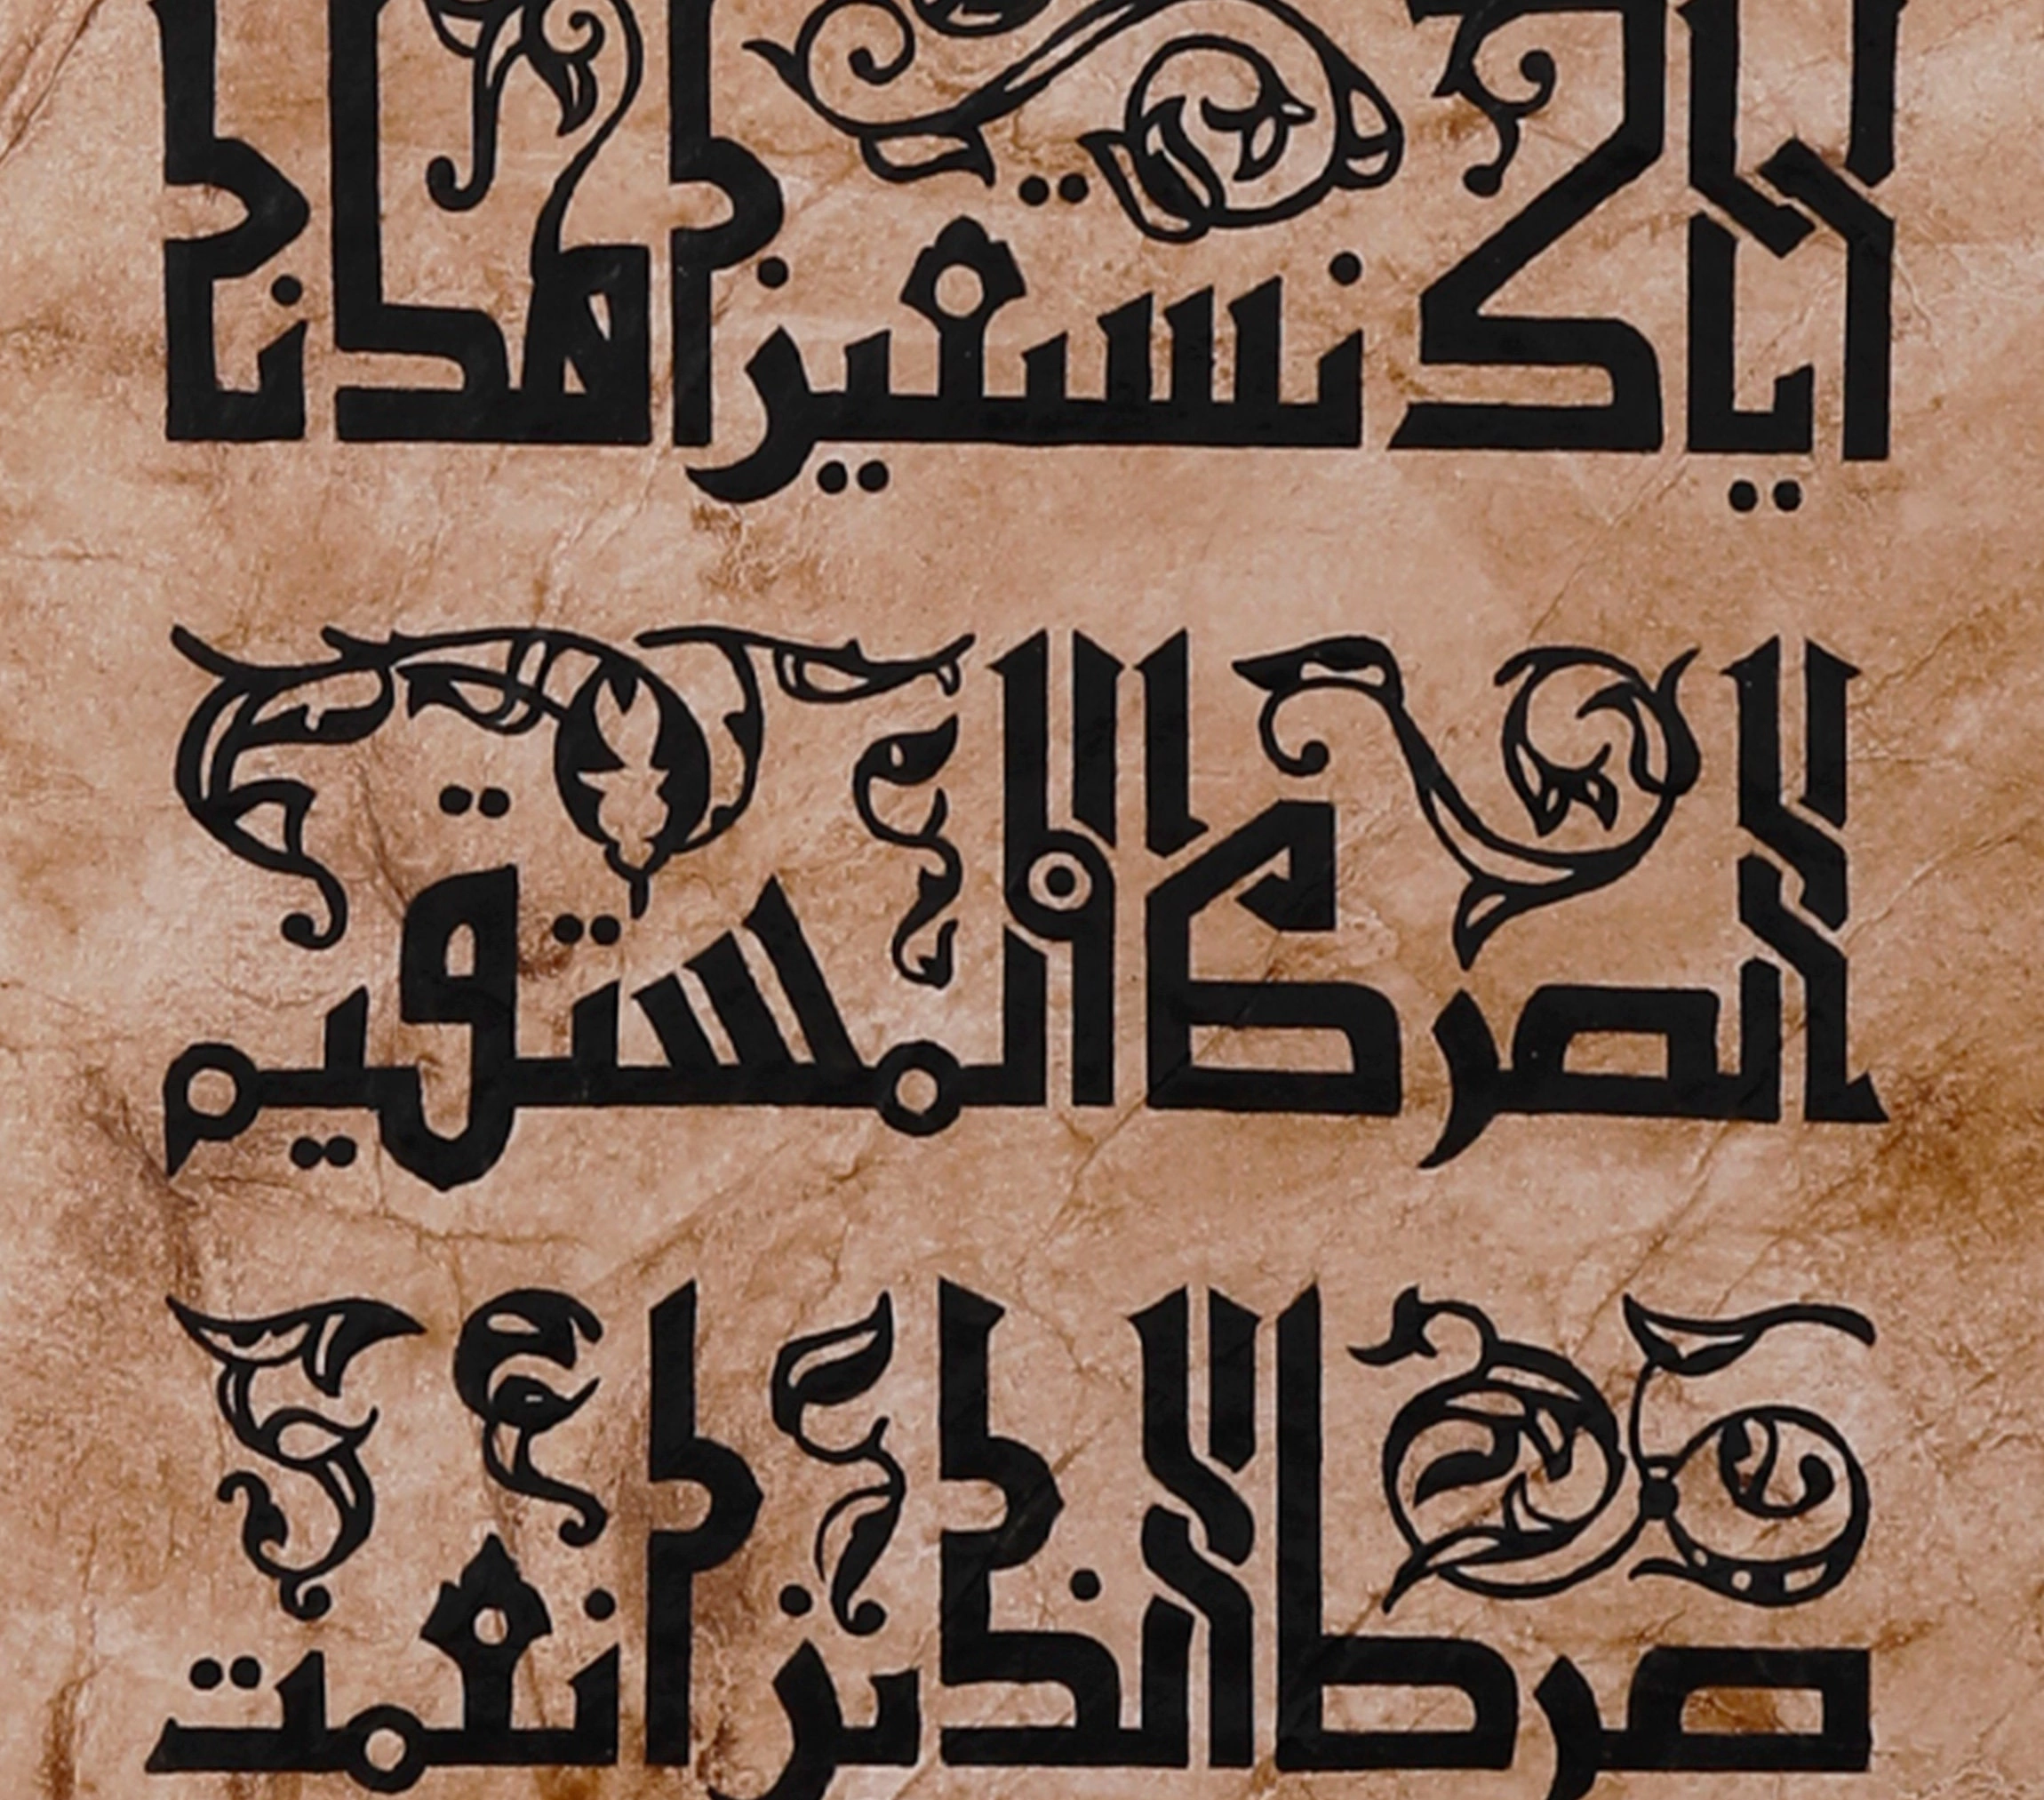 اياك نستعين اهدنا
الصرط المستقيم
صرط الذين انعمت